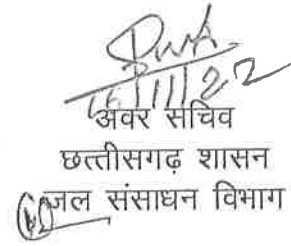 16/11/22
अवर सचिव
छत्तीसगढ़ शासन
जल संसाधन विभाग